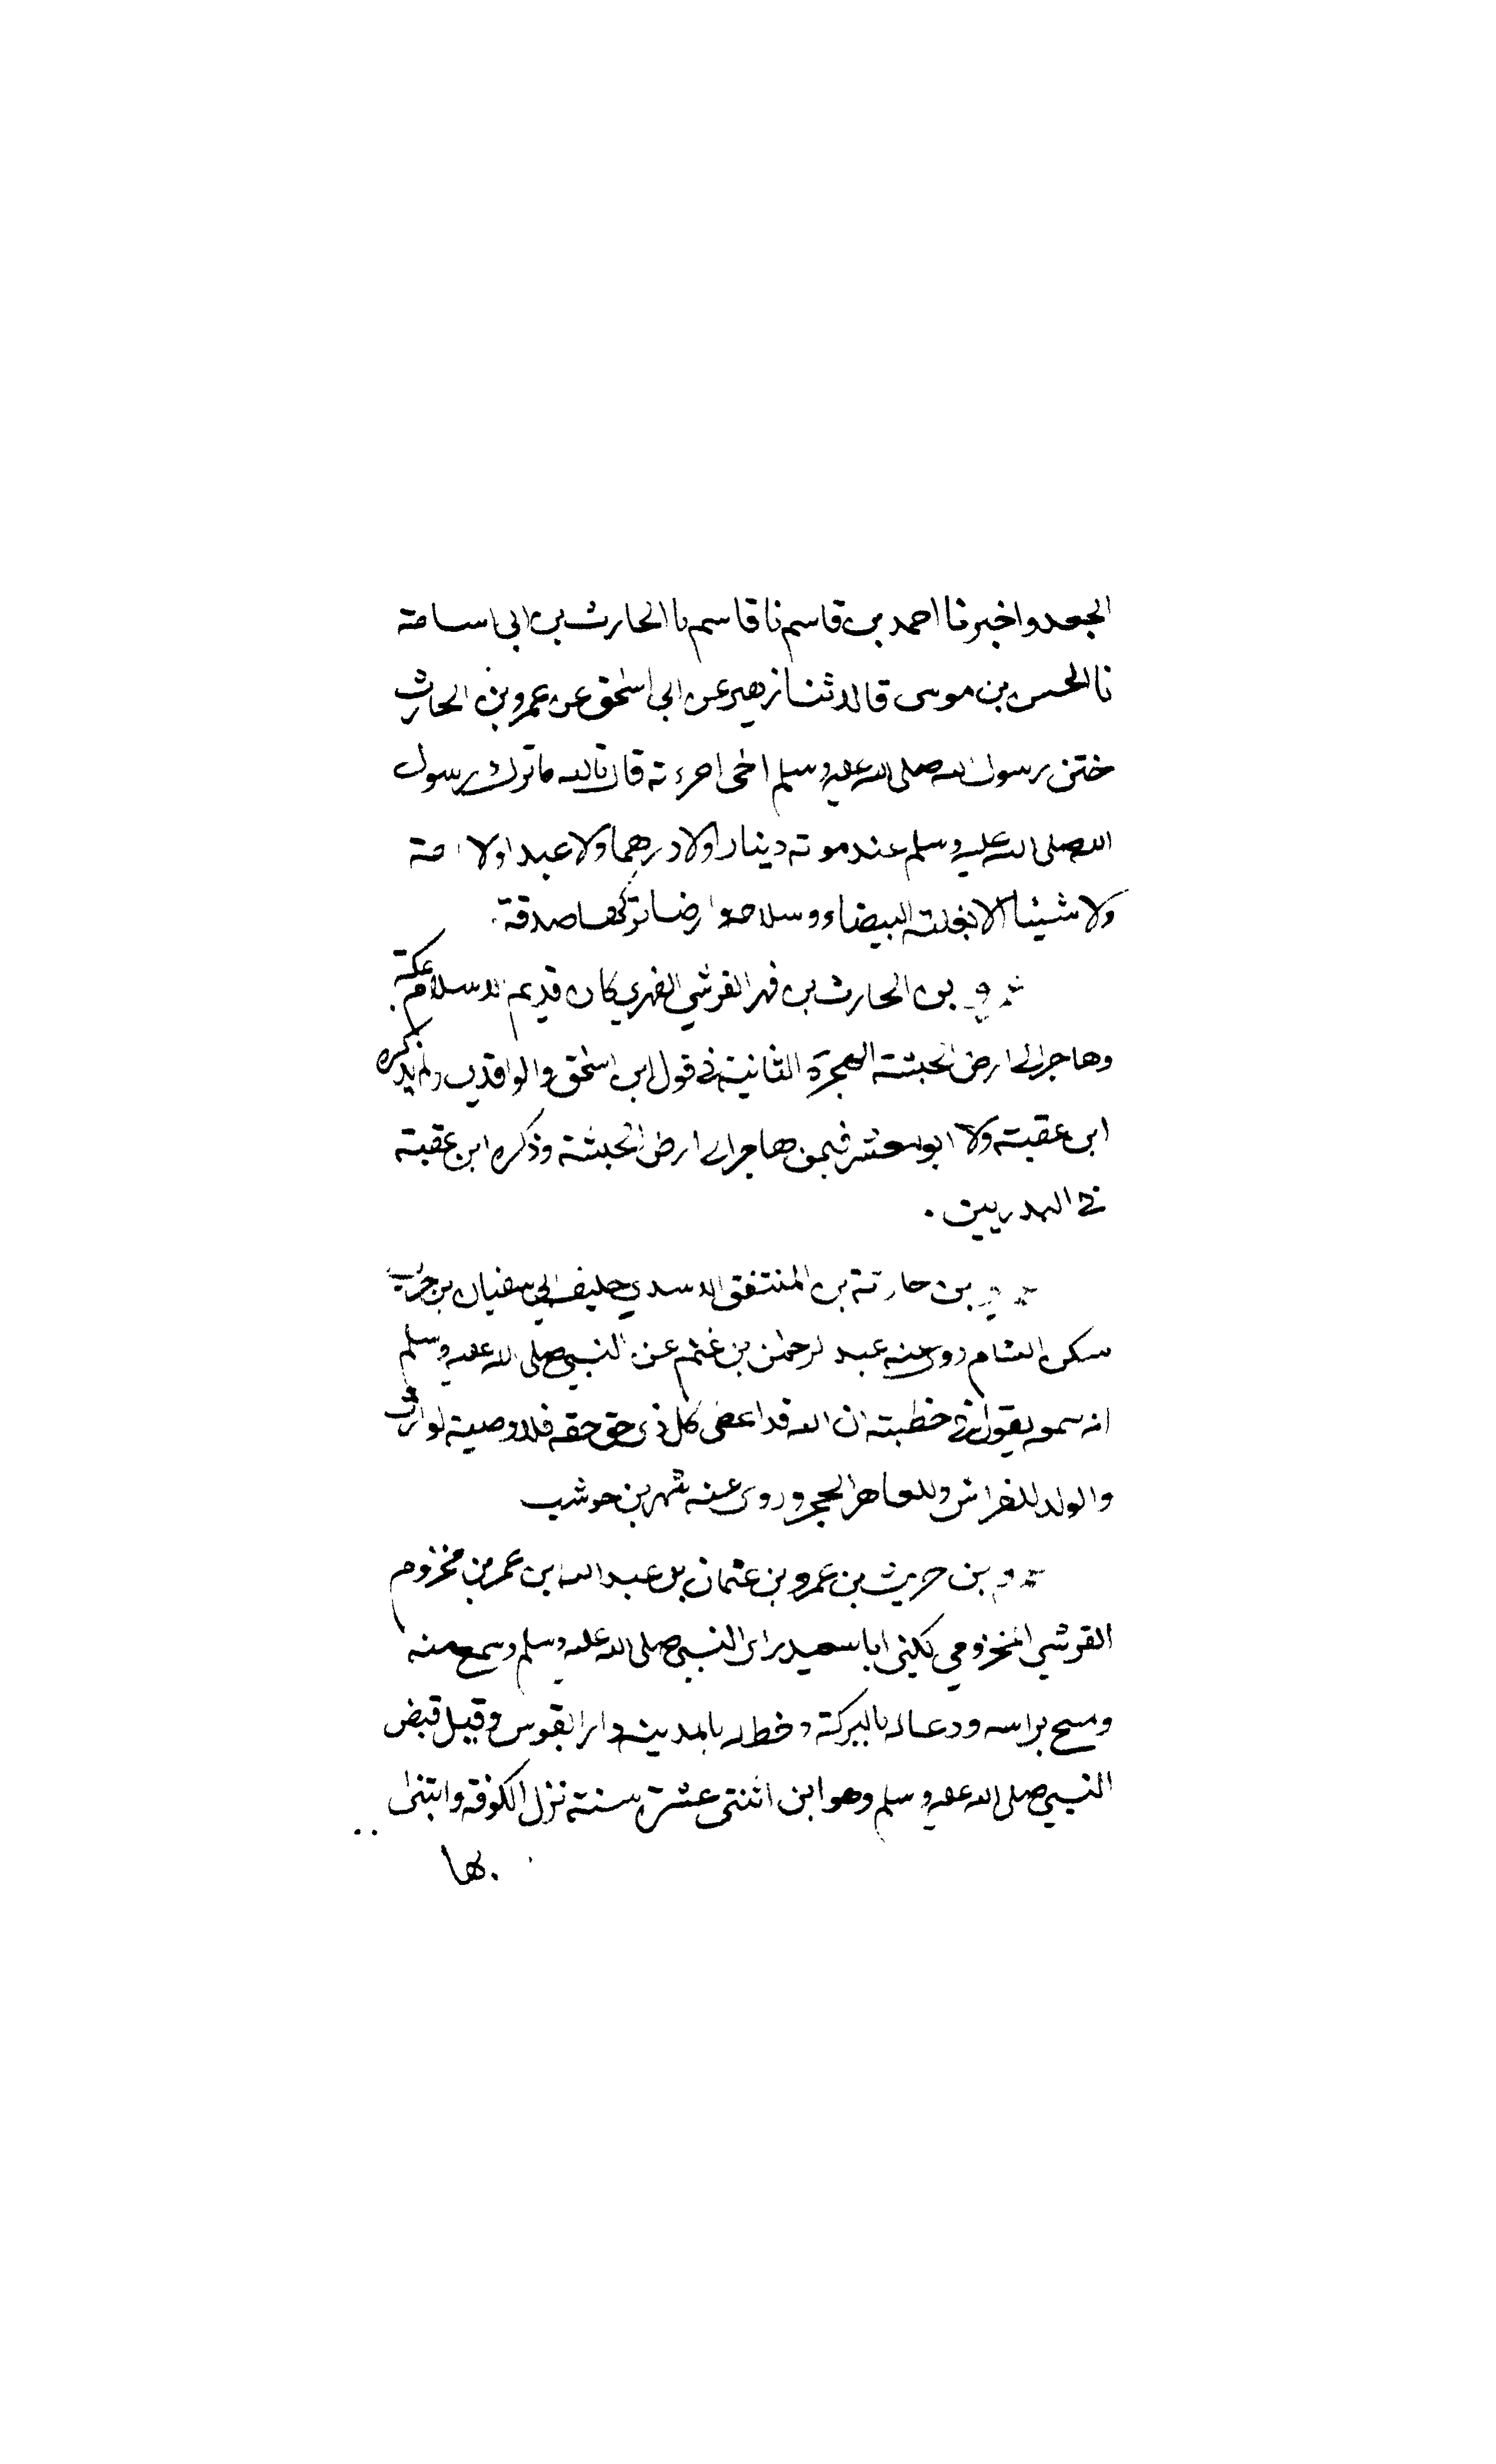 الجعد واخبرنا احمد بن قاسم نا قاسم نا الحارث بن ابى اسامة
نا الحسن بن موسى قال ثنا زهير عن ابى اسحق عن عمرو بن الحارث
ختن رسول الله صلى الله عليه وسلم اخى امرءته قال تالله ما ترك رسول
الله صلى الله عليه وسلم عند موته دينارا ولا درهما ولا عبدا ولا امة
ولا شيئا الا بغلته البيضاء وسلاحه وارضا تركها صدقة.
عمرو بن الحارث بن فهر القرشي الفهري كان قديم الاسلام بمكة
وهاجر الى ارض الحبشة الهجرة الثانية في قول ابن اسحق والواقدي ولم يذكره
ابن عقبة ولا ابو معشر فيمن هاجر الى ارض الحبشة وذكره ابن عقبة
في البدريين .
عمرو بن حارثة بن المنتفق الاسدي حليف ابي سفيان بن حرب
سكن الشام روى عنه عبد الرحمن بن غنم عن النبي صلى الله عليه وسلم
انه سمعه يقول في خطبته ان الله قد اعطى كل ذى حق حقه فلا وصية لوارث
والولد للفراش وللعاهر الحجر وروى عنه شهر بن حوشب
عمرو بن حريث بن عمرو بن عثمان بن عبد الله بن عمر بن مخزوم
القرشي المخزومي يكنى ابا سعيد راى النبي صلى الله عليه وسلم وسمع منه
ومسح براسه ودعا له بالبركة وخط له بالمدينة دارا بقوس وقيل قبض
النبي صلى الله عليه وسلم وهو ابن اثنتى عشرة سنة نزل الكوفة وابتنى
بها